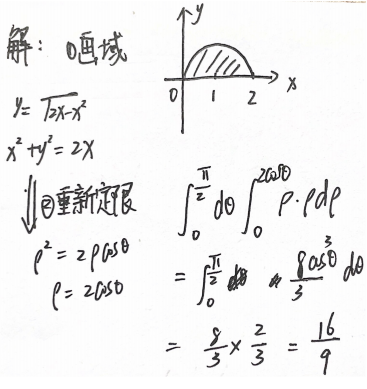 解: ①画域
y
0 1 2 x
y = √2x-x²
x² + y² = 2x
②重新定限
ρ² = 2ρcosθ
ρ = 2cosθ
∫₀^(π/2) dθ ∫₀^(2cosθ) ρ·ρdρ
= ∫₀^(π/2) 8cos³θ/3 dθ
= 8/3 × 2/3 = 16/9